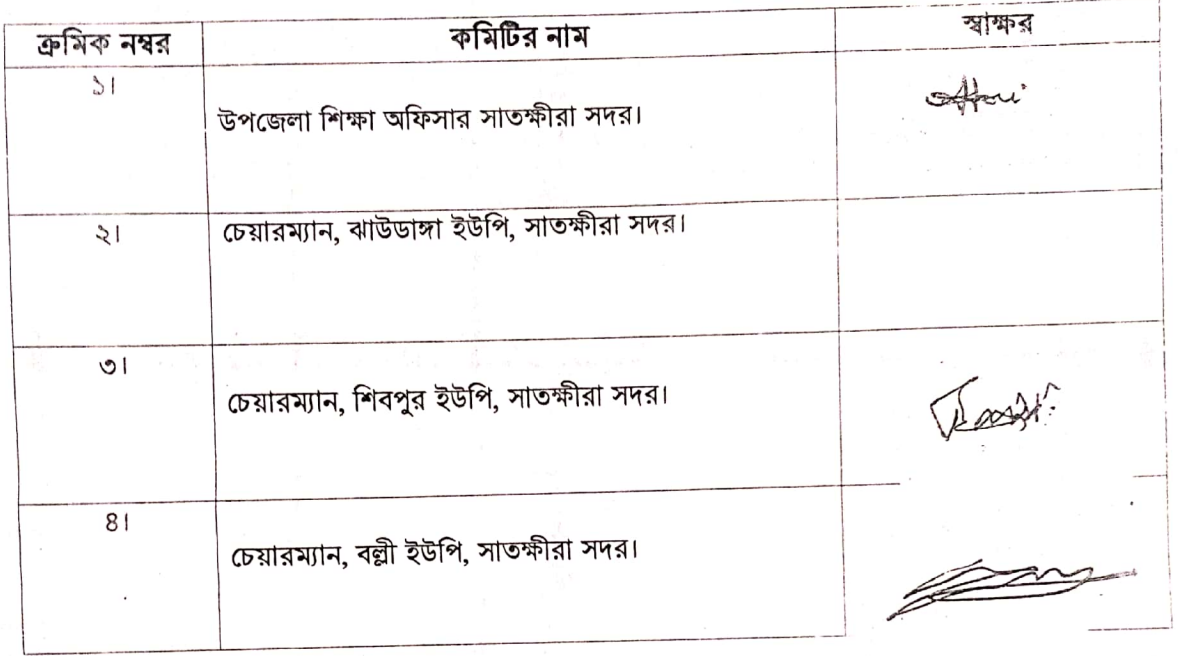 ক্রমিক নম্বর কমিটির নাম স্বাক্ষর
১। উপজেলা শিক্ষা অফিসার সাতক্ষীরা সদর।
২। চেয়ারম্যান, ঝাউডাঙ্গা ইউপি, সাতক্ষীরা সদর।
৩। চেয়ারম্যান, শিবপুর ইউপি, সাতক্ষীরা সদর।
৪। চেয়ারম্যান, বল্লী ইউপি, সাতক্ষীরা সদর।